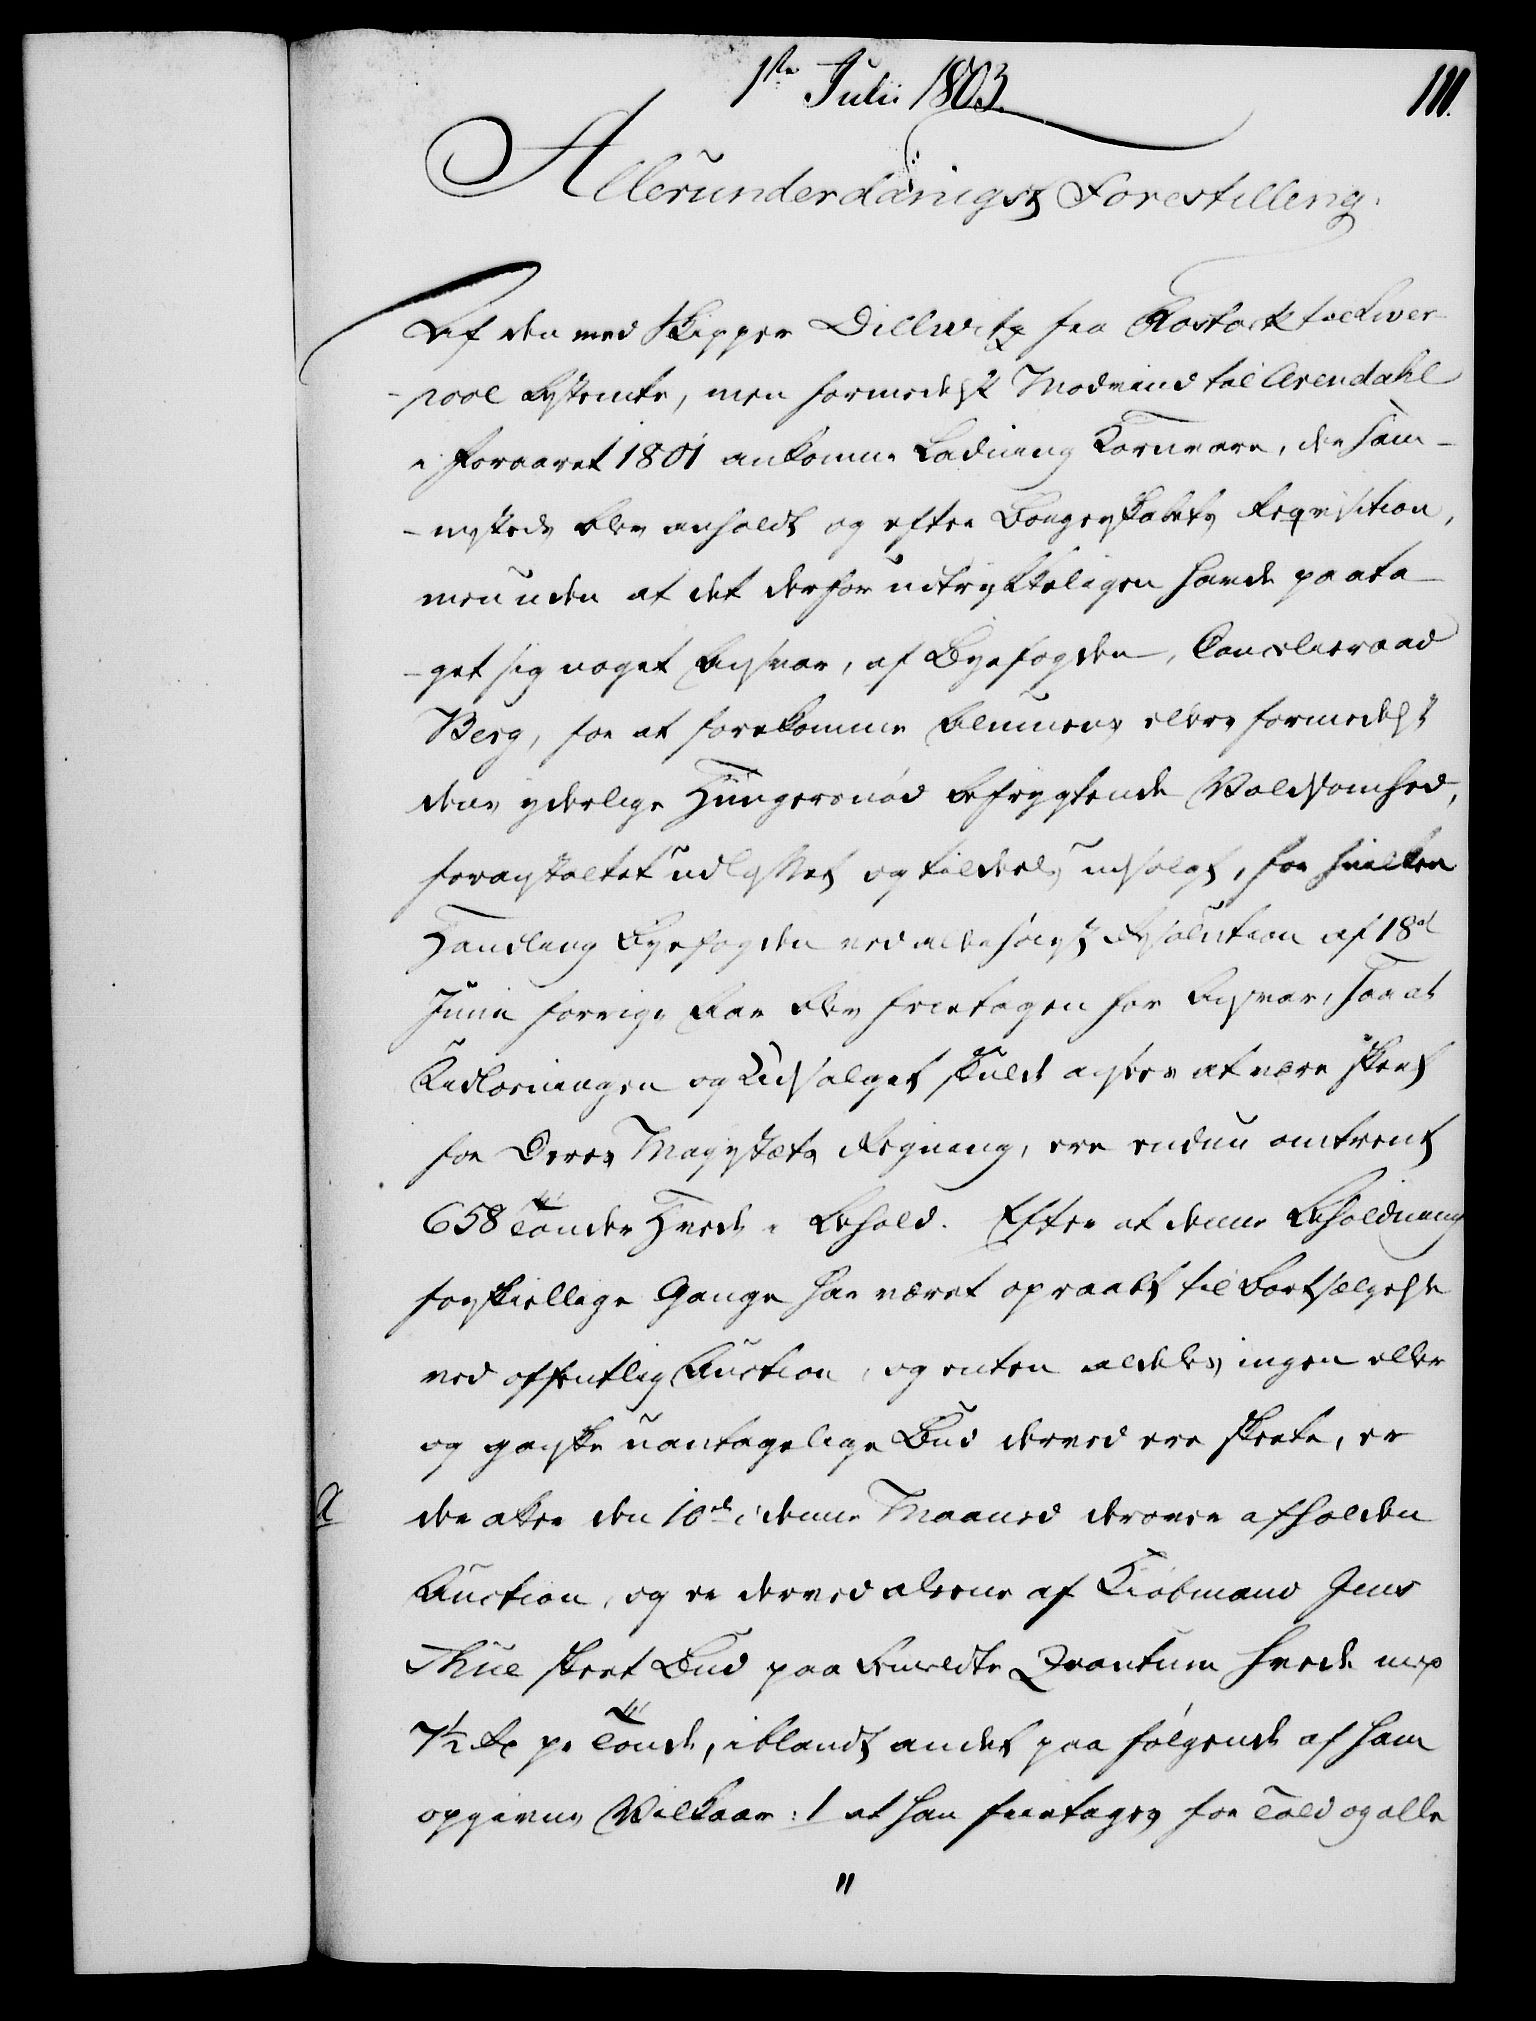 1ste Julii 1803.
111.
Allerunderdanigst Forestilling.
Af den med Skipper Dillwitz fra Rostock til Liver-
-pool bestemte, men formedelst Modvind til Arendahl
i Foraaret 1801 ankomne Ladning Kornvare, der sam-
-mesteds blev anholdt og efter Borgerskabets Reqvisition,
men uden at det derfor udtrykkeligen havde paata-
-get sig noget Ansvar, af Byefogden, Cancelieraad
Berg, for at forekomme Almuens ellers formedelst
dens yderlige Hungersnød befrygtende Voldsomhed,
foranstaltet udlosset og tildeels udsolgt, for hvilken
Handling Byefogden ved allerhøiest Resolution af 18de
Junii forrige Aar blev fritagen for Ansvar, saa at
Udlosningen og Udsalget skulde ansees at være skeet
for Deres Majestæts Regning, ere endnu omtrent
658 Tønder Hvede i Behold. Efter at denne Beholdning
forskiellige Gange har været opraabt til Bortsælgelse
ved offentlig Auction, og enten aldeles ingen eller
og ganske uantagelige Bud derved ere skeete, er
a
der atter den 10de i denne Maaned derover afholden
Auction, og er derved alene af Kiøbmand Jens
Thue skeet Bud paa bemeldte Qvantum Hvede med
7½ Rd pr Tønde, iblandt andet paa følgende af ham
opgivne Vilkaar: 1 at han fritages for Told og alle
"